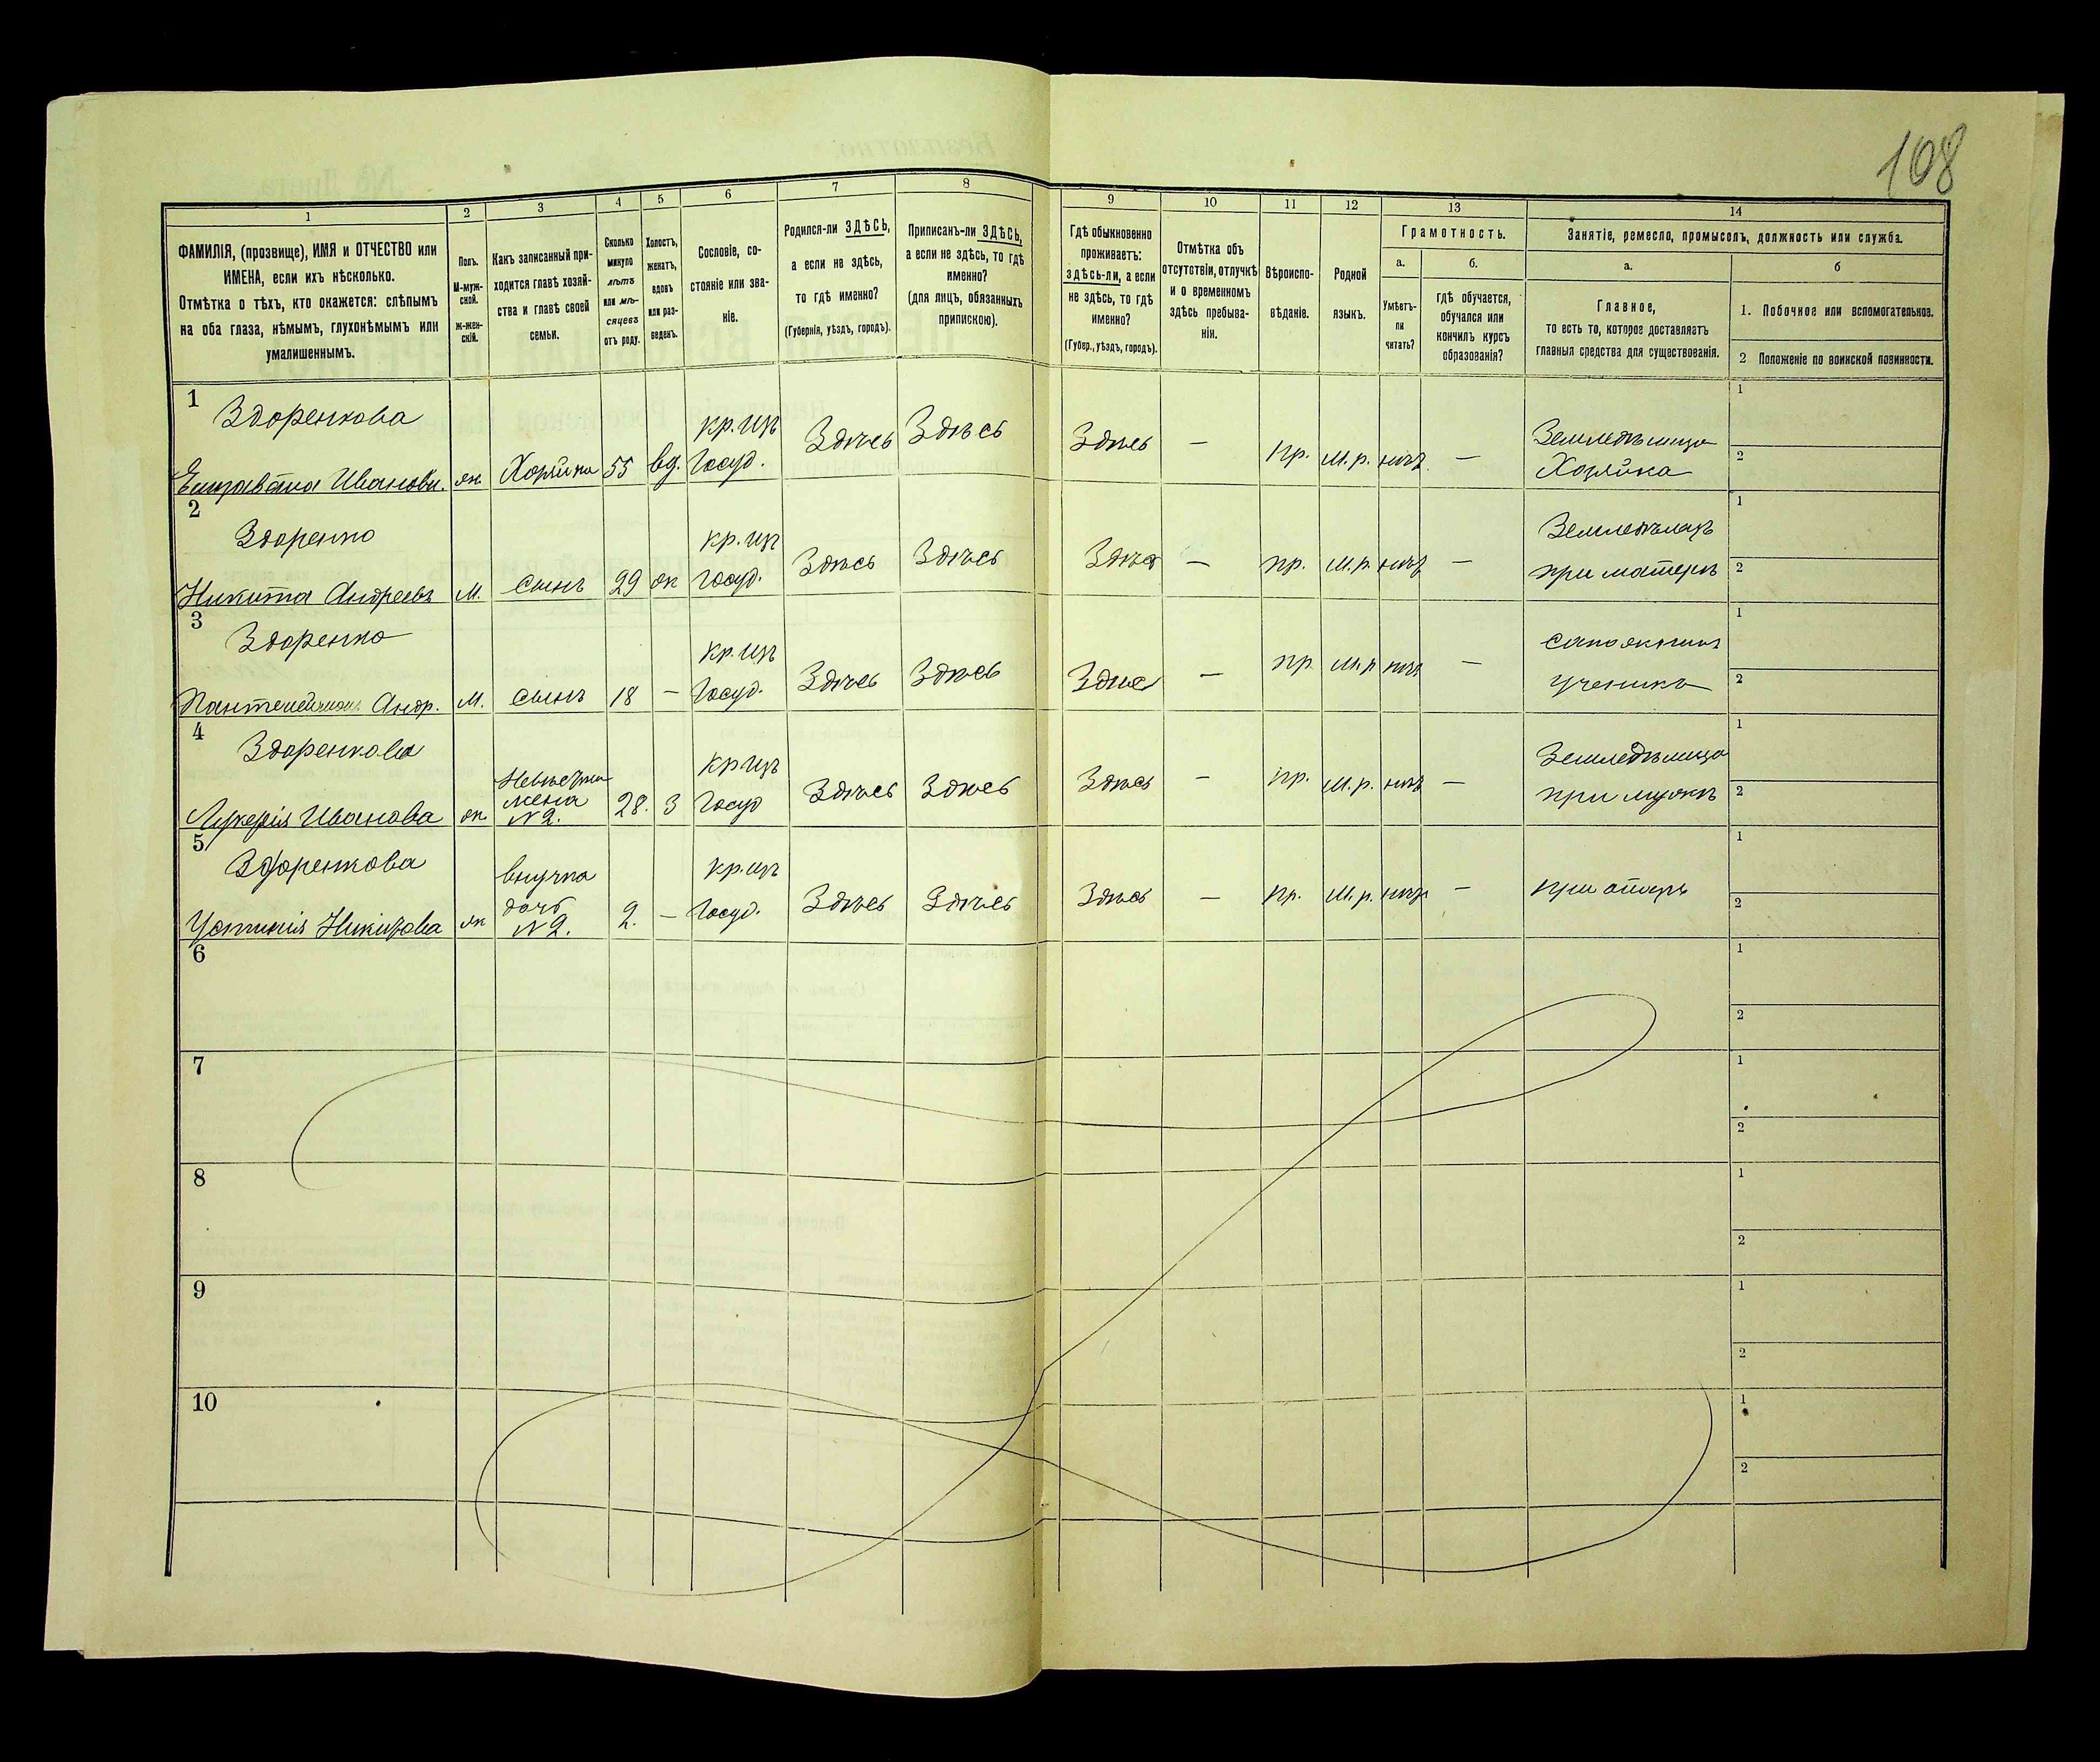 108
1
2
3
4
5
6
7
8
9
10
11
12
13
14
ФАМИЛІЯ, (прозвище), ИМЯ и ОТЧЕСТВО или
ИМЕНА, если ихъ нѣсколько.
Отмѣтка о тѣхъ, кто окажется: слѣпымъ
на оба глаза, нѣмымъ, глухонѣмымъ или
умалишеннымъ.
Полъ.
М-муж-
ской.
ж-жен-
скій.
Какъ записанный при-
ходится главѣ хозяй-
ства и главѣ своей
семьи.
Сколько
минуло
лѣтъ
или мѣ-
сяцевъ
отъ роду.
Холостъ,
женатъ,
вдовъ
или раз-
веденъ.
Сословіе, со-
стояніе или зва-
ніе.
Родился-ли ЗДѢСЬ,
а если не здѣсь,
то гдѣ именно?
(Губернія, уѣздъ, городъ).
Приписанъ-ли ЗДѢСЬ,
а если не здѣсь, то гдѣ
именно?
(для лицъ, обязанныхъ
припискою).
Гдѣ обыкновенно
проживаетъ:
здѣсь-ли, а если
не здѣсь, то гдѣ
именно?
(Губер., уѣздъ, городъ).
Отмѣтка объ
отсутствіи, отлучкѣ
и о временномъ
здѣсь пребыва-
ніи.
Вѣроиспо-
вѣданіе.
Родной
языкъ.
Грамотность.
а.
Умѣетъ-
ли
читать?
б.
гдѣ обучается,
обучался или
кончилъ курсъ
образованія?
Занятіе, ремесло, промыселъ, должность или служба.
а.
Главное,
то есть то, которое доставляетъ
главныя средства для существованія.
б
1. Побочное или вспомогательное.
2 Положеніе по воинской повинности.
1
Здоренкова
Елизавета Ивановн.
ж
Хозяйка
55
вд.
кр. изъ
Госуд.
Здѣсь
Здѣсь
Здѣсь
—
пр.
м. р.
нѣтъ
—
Земледѣлица
Хозяйка
1
2
2
Здоренко
Никита Андреевъ
М.
сынъ
29
ж
кр. изъ
Госуд.
Здѣсь
Здѣсь
Здѣсь
—
пр.
м. р.
нѣтъ
—
Земледѣлецъ
при матери
1
2
3
Здоренко
Пантелеймонъ Андр.
М.
сынъ
18
—
кр. изъ
Госуд.
Здѣсь
Здѣсь
Здѣсь
—
пр.
м. р
нѣтъ
—
сапожникъ
ученикъ
1
2
4
Здоренкова
Лукерія Иванова
ж
Невѣстка
жена
№ 2.
28.
З
кр изъ
Госуд
Здѣсь
Здѣсь
Здѣсь
—
пр.
м. р.
нѣтъ
—
Земледѣлица
при мужѣ
1
2
5
Здоренкова
Устинія Никитова
ж
внучка
дочь
№ 2.
2.
—
кр. изъ
Госуд.
Здѣсь
Здѣсь
Здѣсь
—
пр.
м. р.
нѣтъ
—
при отцѣ
1
2
6
1
2
7
1
2
8
1
2
9
1
2
10
1
2